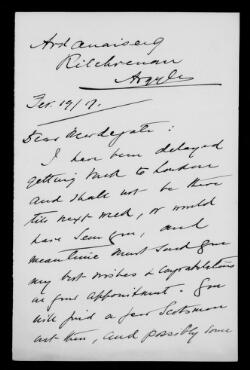 Ardanaiseig
Kilchrenan
Argyll
Feb. 19/17.
Dear Newdegate:
I have been delayed
getting back to London
and shall not be there
till next week, or would
have seen you, and
meantime must send you
my best wishes & congratulations
on your appointment. You
will find a few Scotsmen
out there, and possibly some